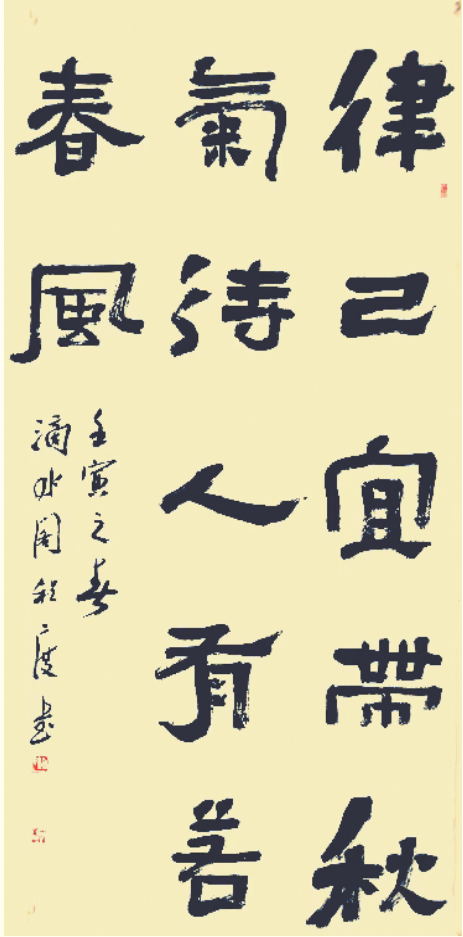 律己宜帶秋
氣待人有若
春風
壬寅之春
滴水阁程度書